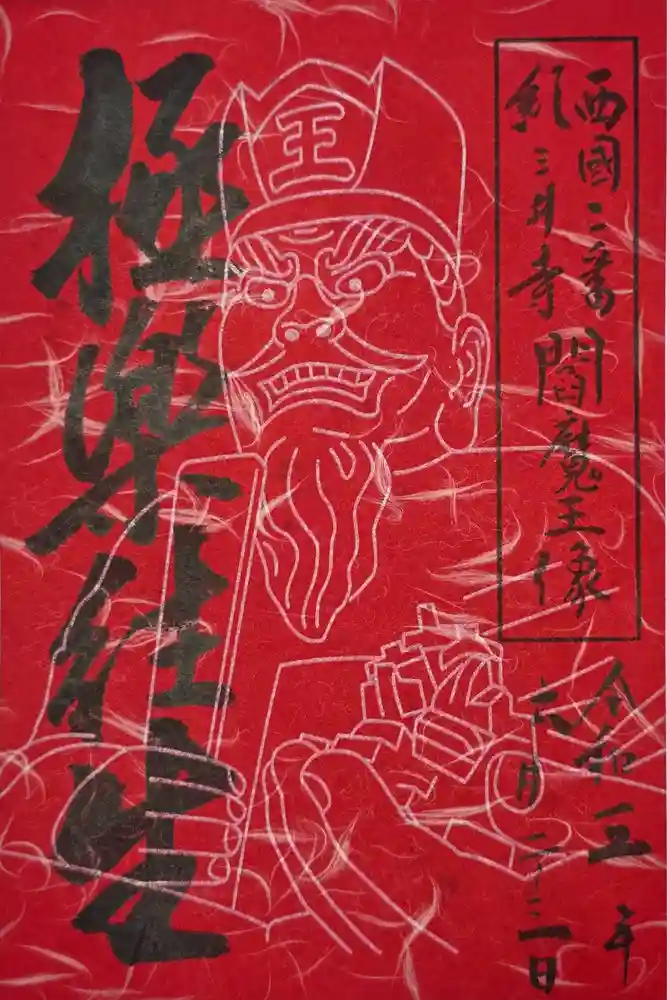 西國二番
紀三井寺
閻魔王像
令和五年
六月二十三日
王
極樂往生